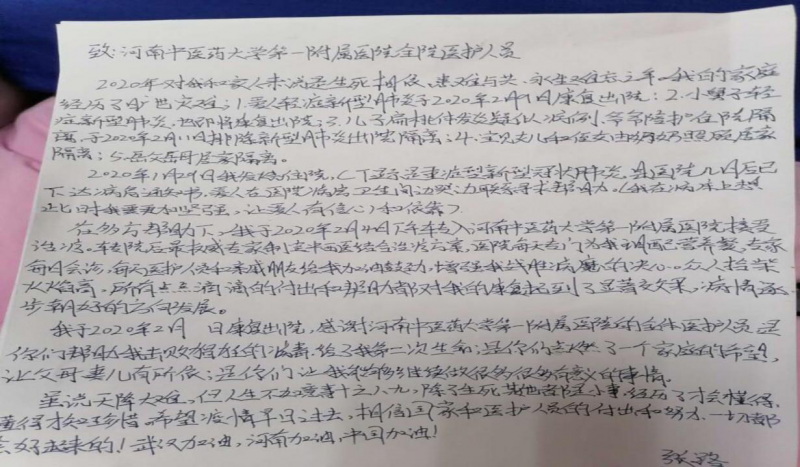 致:河南中医药大学第一附属医院全院医护人员
2020年对我和家人来说是生死相依、患难与共、永生难忘之年。我的家庭
经历了旷世灾难:1.爱人轻症新型肺炎于2020年2月9日康复出院;2.小舅子轻
症新型肺炎,也即将康复出院;3.儿子扁桃体发炎疑似病例,爷爷陪护住院隔
离,于2020年2月11日排除新型肺炎出院隔离;4.宝贝女儿和侄女由奶奶照顾居家
隔离;5.岳父岳母居家隔离。
2020年1月29日我发烧住院,CT显示是重症型新型冠状肺炎,县医院几日后已
下达病危通知书,爱人在医院病房卫生间边哭边联系寻求帮助。(我在病床上想
此时我要更加坚强,让爱人有信心和依靠)
在多方帮助下,我于2020年2月4日下午转入河南中医药大学第一附属医院接受
治疗。转院后最权威专家制定中西医结合治疗方案,医院每天专门为我调配营养餐,专家
每日会诊,每天医护人员和亲戚朋友给我加油鼓劲,增强我战胜病魔的决心。众人拾柴
火焰高,所有点点滴滴的付出和帮助都对我的康复起到了显著效果,病情逐
步朝好的方向发展。
我于2020年2月 日康复出院,感谢河南中医药大学第一附属医院的全体医护人员,是
你们帮助我击败猖狂的病毒,给了我第二次生命;是你们点燃了一个家庭的希望,
让父母妻儿有所依;是你们让我能够继续做很多很多有意义的事情。
虽说天降大难,但人生不如意事十之八九,除了生死,其他皆是小事,经历了才会懂得,
懂得才知珍惜。希望疫情早日过去,相信国家和医护人员的付出和努力,一切都
会好起来的!武汉加油,河南加油,中国加油!
张路